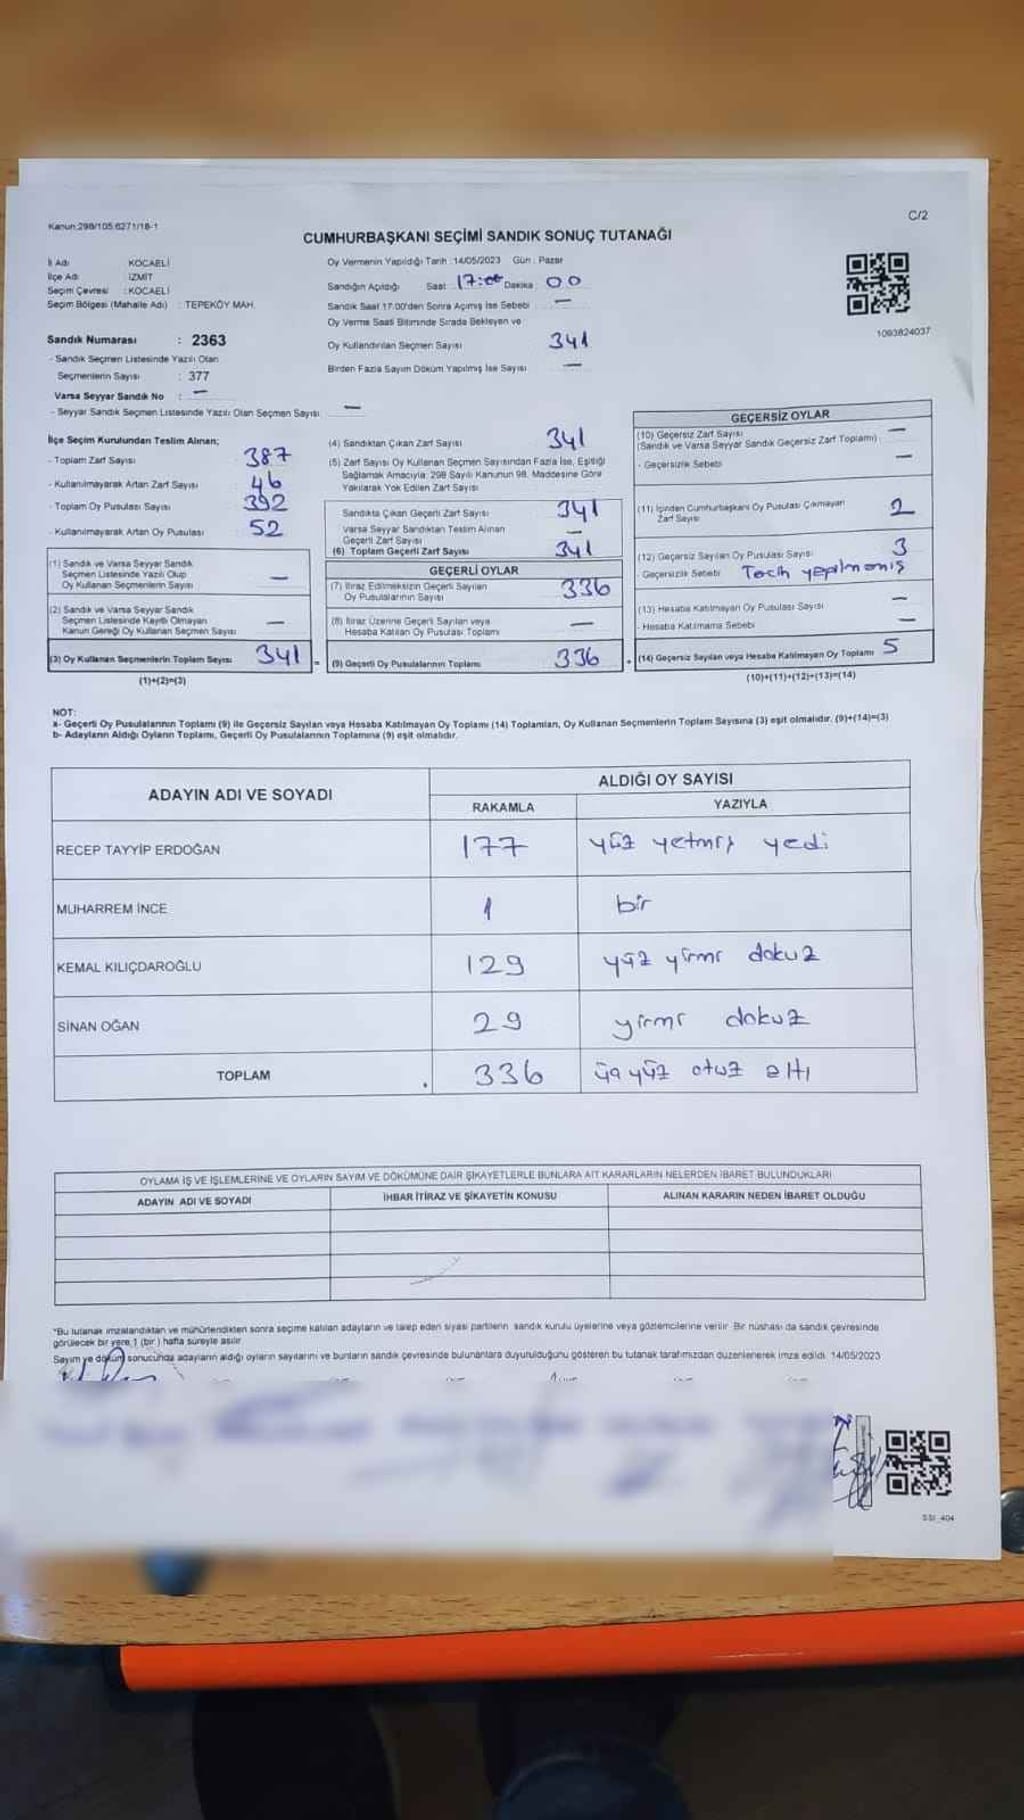 Kanun:298/105.6271/18-1
C/2
CUMHURBAŞKANI SEÇİMİ SANDIK SONUÇ TUTANAĞI
İl Adı KOCAELİ
İlçe Adı İZMİT
Seçim Çevresi : KOCAELİ
Seçim Bölgesi (Mahalle Adı) : TEPEKÖY MAH.
Sandık Numarası : 2363
- Sandık Seçmen Listesinde Yazılı Olan
Seçmenlerin Sayısı : 377
Varsa Seyyar Sandık No : —
- Seyyar Sandık Seçmen Listesinde Yazılı Olan Seçmen Sayısı —
Oy Vermenin Yapıldığı Tarih : 14/05/2023 Gün : Pazar
Sandığın Açıldığı Saat 17:00 Dakika : 00
Sandık Saat 17.00'den Sonra Açımış İse Sebebi —
Oy Verme Saati Bitiminde Sırada Bekleyen ve
Oy Kullandırılan Seçmen Sayısı 341
Birden Fazla Sayım Döküm Yapılmış İse Sayısı —
1093824037
İlçe Seçim Kurulundan Teslim Alınan;
- Toplam Zarf Sayısı 387
- Kullanılmayarak Artan Zarf Sayısı 46
- Toplam Oy Pusulası Sayısı 392
- Kullanılmayarak Artan Oy Pusulası 52
(1) Sandık ve Varsa Seyyar Sandık
Seçmen Listesinde Yazılı Olup
Oy Kullanan Seçmenlerin Sayısı —
(2) Sandık ve Varsa Seyyar Sandık
Seçmen Listesinde Kayıtlı Olmayan
Kanun Gereği Oy Kullanan Seçmen Sayısı —
(3) Oy Kullanan Seçmenlerin Toplam Sayısı 341
(1)+(2)=(3)
(4) Sandıktan Çıkan Zarf Sayısı 341
(5) Zarf Sayısı Oy Kullanan Seçmen Sayısından Fazla İse, Eşitliği
Sağlamak Amacıyla, 298 Sayılı Kanunun 98. Maddesine Göre
Yakılarak Yok Edilen Zarf Sayısı
Sandıkta Çıkan Geçerli Zarf Sayısı 341
Varsa Seyyar Sandıktan Teslim Alınan
Geçerli Zarf Sayısı —
(6) Toplam Geçerli Zarf Sayısı 341
GEÇERLİ OYLAR
(7) İtiraz Edilmeksizin Geçerli Sayılan
Oy Pusulalarının Sayısı 336
(8) İtiraz Üzerine Geçerli Sayılan veya
Hesaba Katılan Oy Pusulası Toplamı —
= (9) Geçerli Oy Pusulalarının Toplamı 336
GEÇERSİZ OYLAR
(10) Geçersiz Zarf Sayısı
(Sandık ve Varsa Seyyar Sandık Geçersiz Zarf Toplamı) —
- Geçersizlik Sebebi —
(11) İçinden Cumhurbaşkanı Oy Pusulası Çıkmayan
Zarf Sayısı 2
(12) Geçersiz Sayılan Oy Pusulası Sayısı 3
- Geçersizlik Sebebi Tercih yapılmamış
(13) Hesaba Katılmayan Oy Pusulası Sayısı —
- Hesaba Katılmama Sebebi —
(14) Geçersiz Sayılan veya Hesaba Katılmayan Oy Toplamı 5
(10)+(11)+(12)+(13)=(14)
NOT:
a- Geçerli Oy Pusulalarının Toplamı (9) ile Geçersiz Sayılan veya Hesaba Katılmayan Oy Toplamı (14) Toplamları, Oy Kullanan Seçmenlerin Toplam Sayısına (3) eşit olmalıdır. (9)+(14)=(3)
b- Adayların Aldığı Oyların Toplamı, Geçerli Oy Pusulalarının Toplamına (9) eşit olmalıdır.
ADAYIN ADI VE SOYADI ALDIĞI OY SAYISI
RAKAMLA YAZIYLA
RECEP TAYYİP ERDOĞAN 177 yüz yetmiş yedi
MUHARREM İNCE 1 bir
KEMAL KILIÇDAROĞLU 129 yüz yirmi dokuz
SİNAN OĞAN 29 yirmi dokuz
TOPLAM 336 üç yüz otuz altı
OYLAMA İŞ VE İŞLEMLERİNE VE OYLARIN SAYIM VE DÖKÜMÜNE DAİR ŞİKAYETLERLE BUNLARA AİT KARARLARIN NELERDEN İBARET BULUNDUKLARI
ADAYIN ADI VE SOYADI İHBAR İTİRAZ VE ŞİKAYETİN KONUSU ALINAN KARARIN NEDEN İBARET OLDUĞU
*Bu tutanak imzalandıktan ve mühürlendikten sonra seçime katılan adayların ve talep eden siyasi partilerin sandık kurulu üyelerine veya gözlemcilerine verilir. Bir nüshası da sandık çevresinde
görülecek bir yere 1 (bir ) hafta süreyle asılır.
Sayım ve döküm sonucunda adayların aldığı oyların sayılarını ve bunların sandık çevresinde bulunanlara duyurulduğunu gösteren bu tutanak tarafımızdan düzenlenerek imza edildi. 14/05/2023
SSI_404